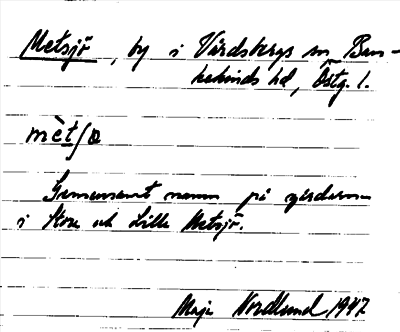 Metsjö, by i Vårdsbergs sn, Ban-
kekinds hd, Östg. l.
mèt∫ω
Gemensamt namn på gårdarna
i Stora och Lilla Metsjö.
Maja Nordlund 1947